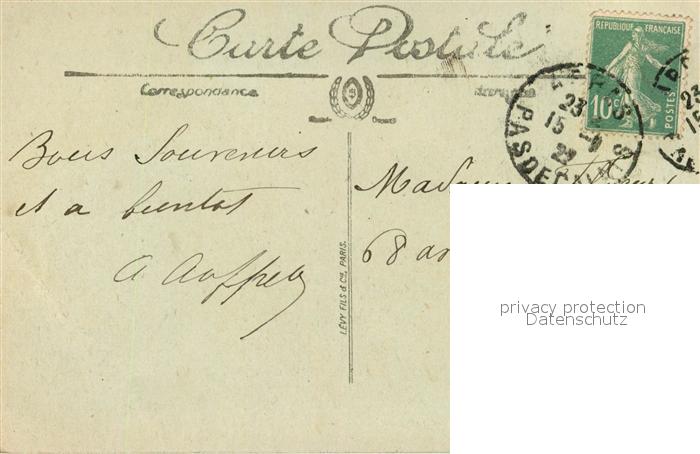 Carte Postale
Correspondance
RÉPUBLIQUE FRANÇAISE
10c
POSTES
23
15
PAS DE CALAIS
Bons Souvenirs
et a bientot
A
Madame
68 av
LÉVY FILS & Cie, PARIS.
privacy protection
Datenschutz